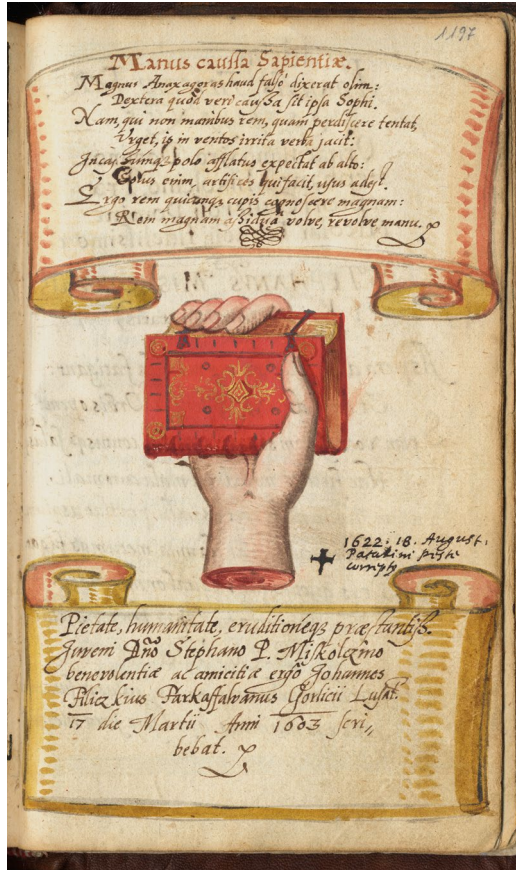 1197
Manus caussa Sapientiæ.
Magnus Anaxagoras haud falsò dixerat olim:
Dextera quòd veri caussa sit ipsa Sophi.
Nam, qui non manibus rem, quam perdiscere tentat,
Urget, is in ventos irrita verba jacit:
polo afflatus expectat ab alto:
enim artifices qui facit, usus adest.
Ergo rem quicunq; cupis cognoscere magnam:
Rem magnam assiduâ volve, revolve manu.
1622. 18. August.
Patakini peste
Pietate, humanitate, eruditioneq; præstantiss.
Juveni Dño Stephano P. Miskolzino
benevolentiæ ac amicitiæ ergò Johannes
Filiczkius Farkaffalvanus Gorlicii Lusat.
17 die Martii Anni 1603 scri„
bebat.